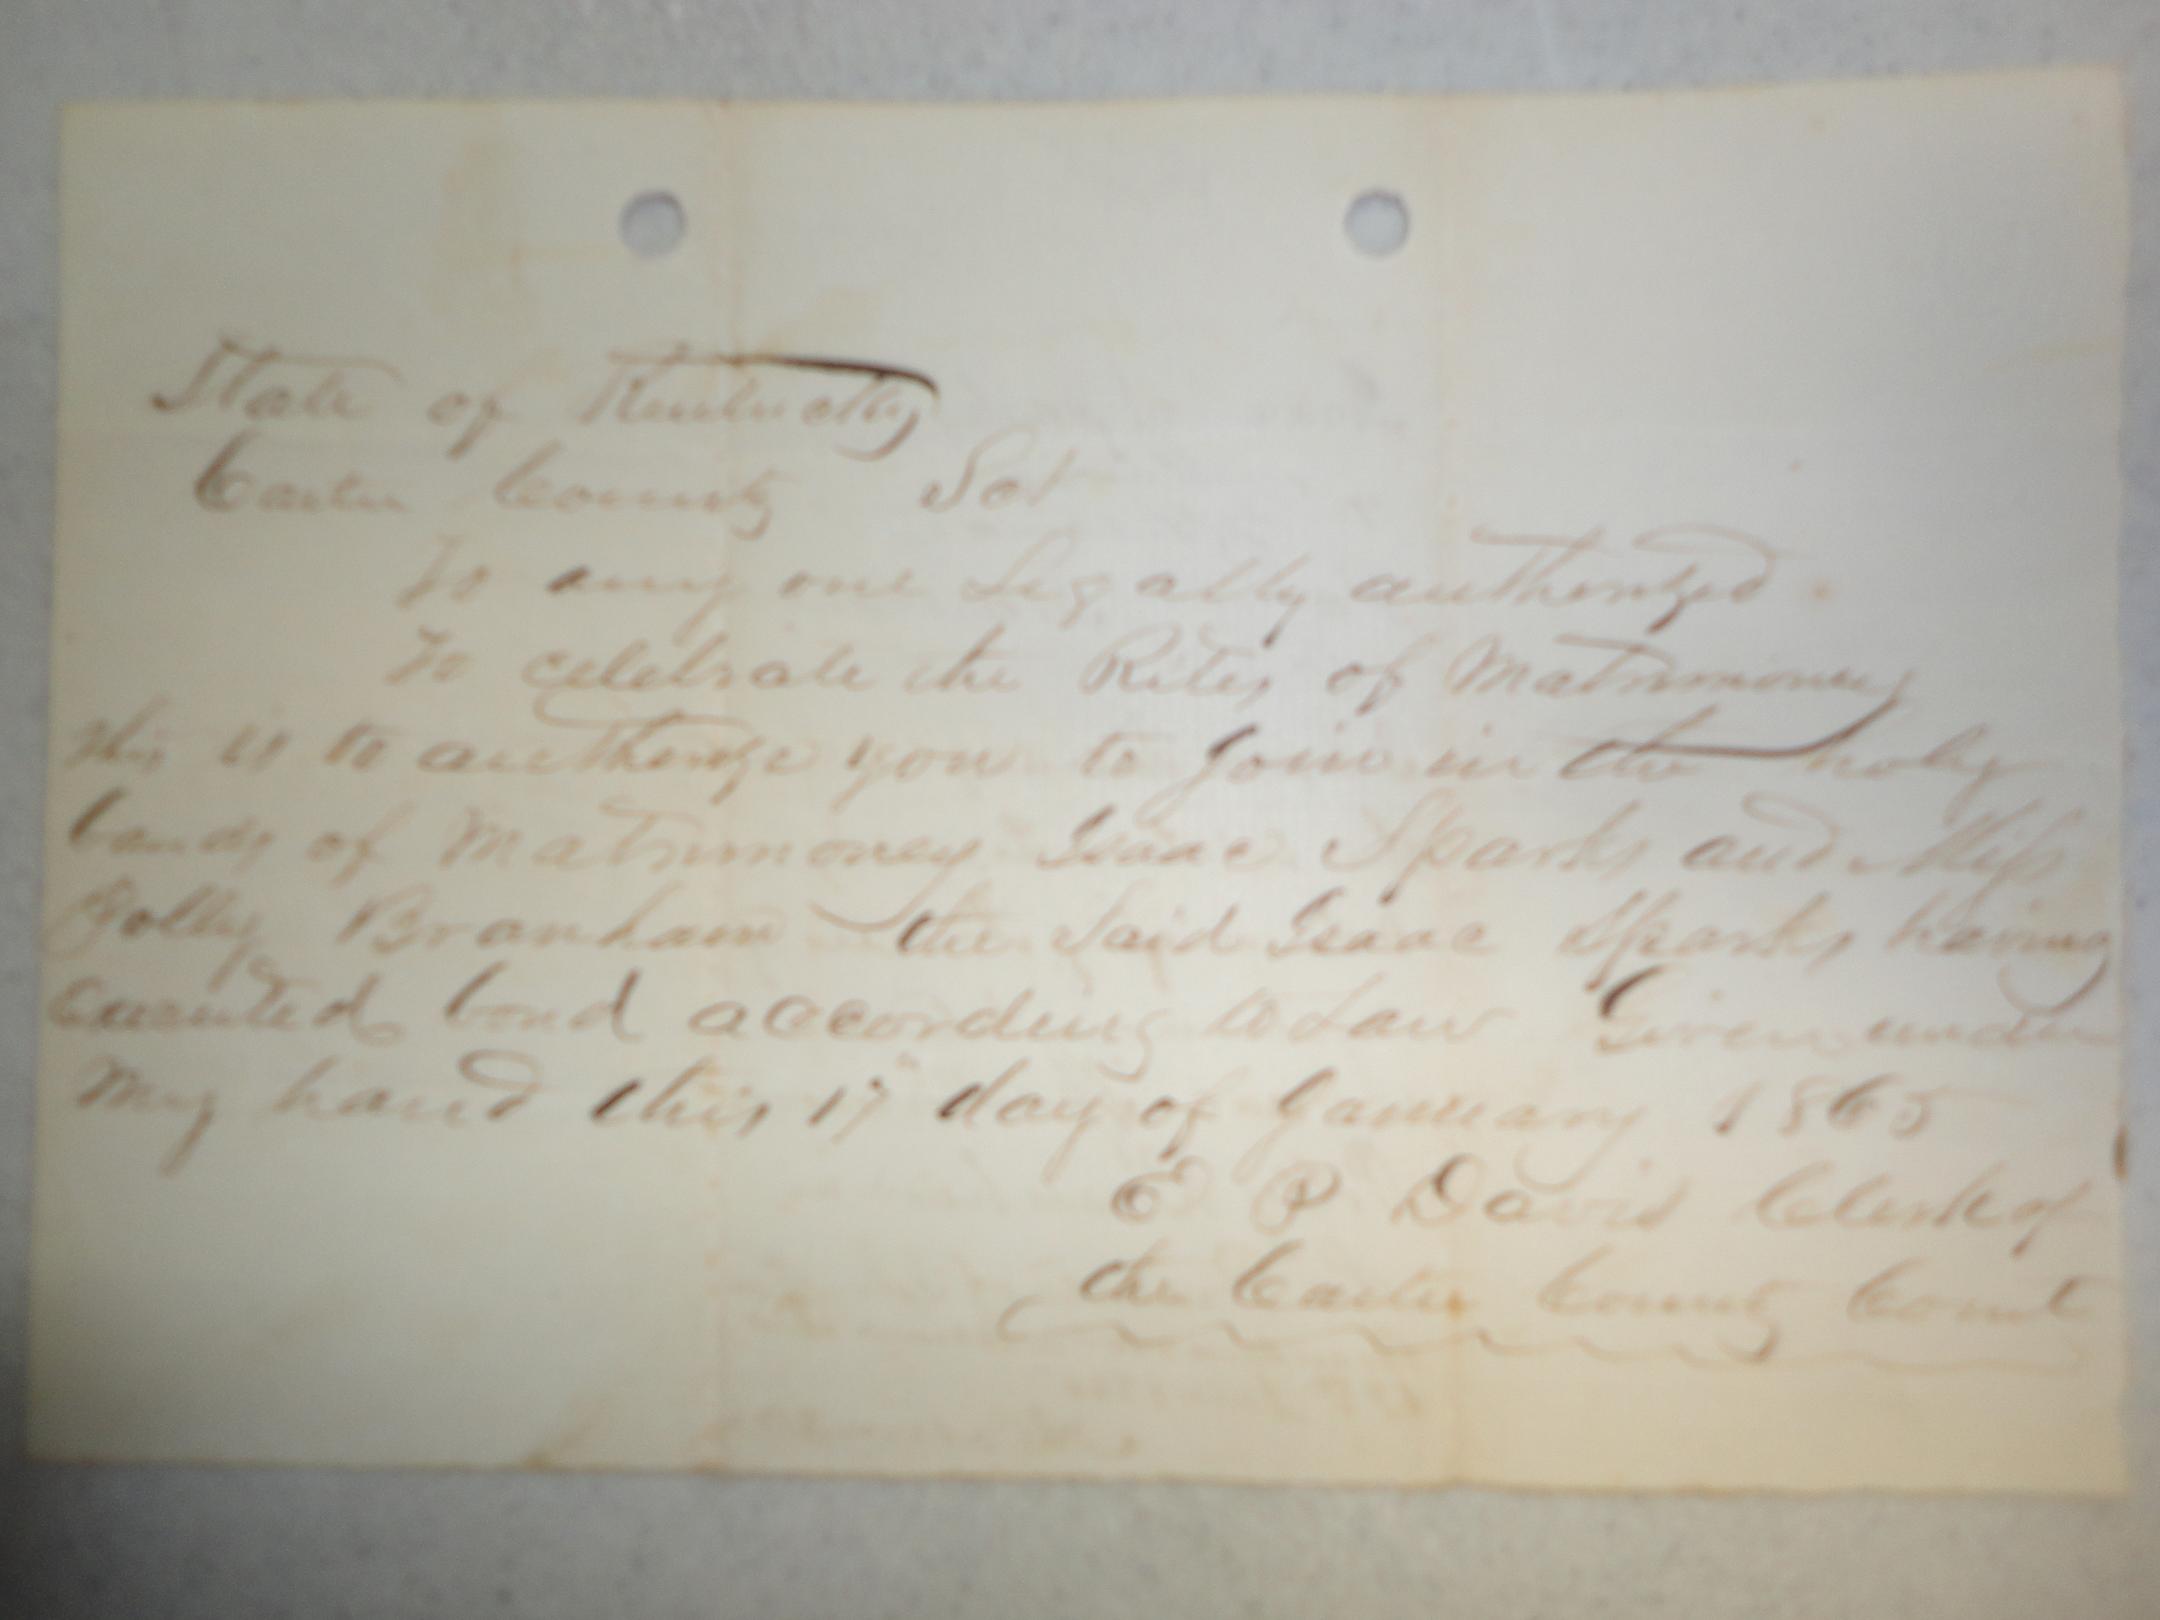 State of Kentucky
Carter County Sct
To any one Legally authorized
To celebrate the Rites of Matrimoney
this is to authorize you to Join in the holy
bands of Matrimoney Isaac Sparks and Miss
Polly Branham the Said Isaac Sparks having
executed bond according to Law Given under
My hand this 17 day of January 1865
E P Davis Clerk of
the Carter County Court